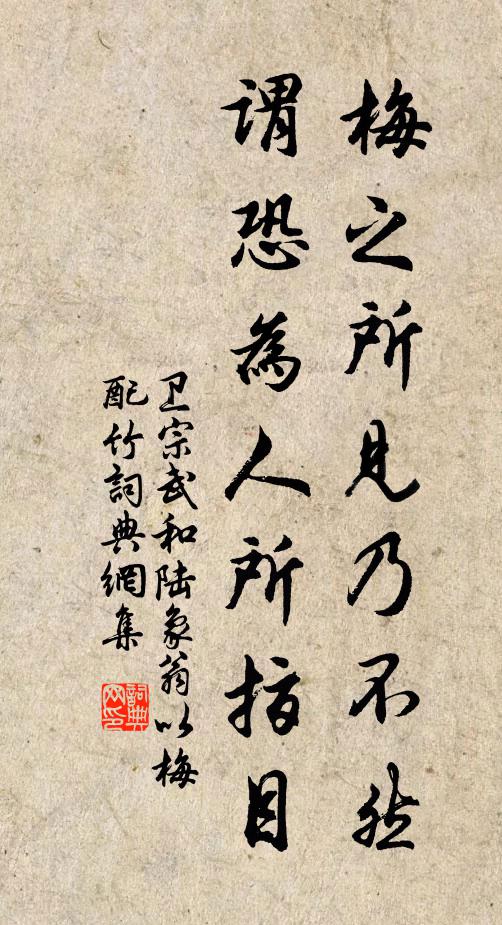 梅之所見乃不然
謂恐為人所指目
卫宗武和陆象翁以梅
配竹詞典網集
詞典网印